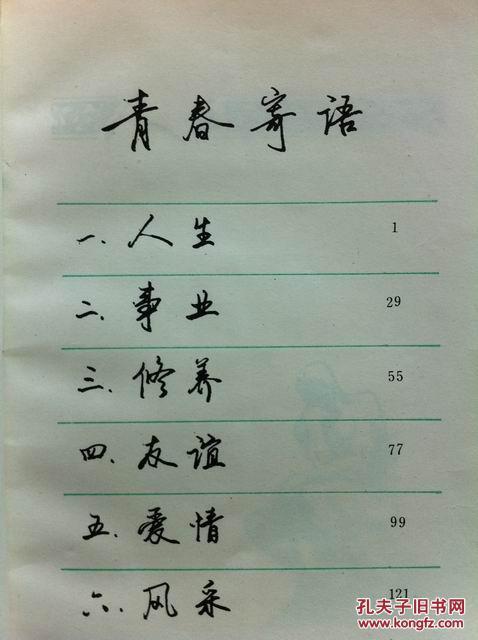 青春寄语
一、人生 1
二、事业 29
三、修养 55
四、友谊 77
五、爱情 99
六、风采 121
孔夫子旧书网
www.kongfz.com